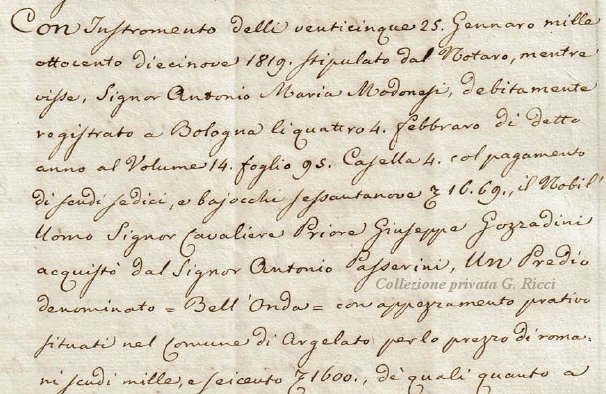 Con Instromento delli venticinque 25. Gennaro mille
ottocento diecinove 1819. stipulato dal Notaro, mentre
visse, Signor Antonio Maria Modonesi, debitamente
registrato a Bologna li quattro 4. febbraro di detto
anno al Volume 14. foglio 95. Casella 4. col pagamento
di scudi sedici, e bajocchi sessantanove 16.69., il Nobil'
Uomo Signor Cavaliere Priore Giuseppe Gozzadini
acquistò dal Signor Antonio Passerini, Un Predio
Collezione privata G. Ricci
denominato = Bell'Onda = con appezzamento prativo
situati nel Comune di Argelato per lo prezzo di roma-
ni scudi mille, e seicento 1600., de' quali quanto a